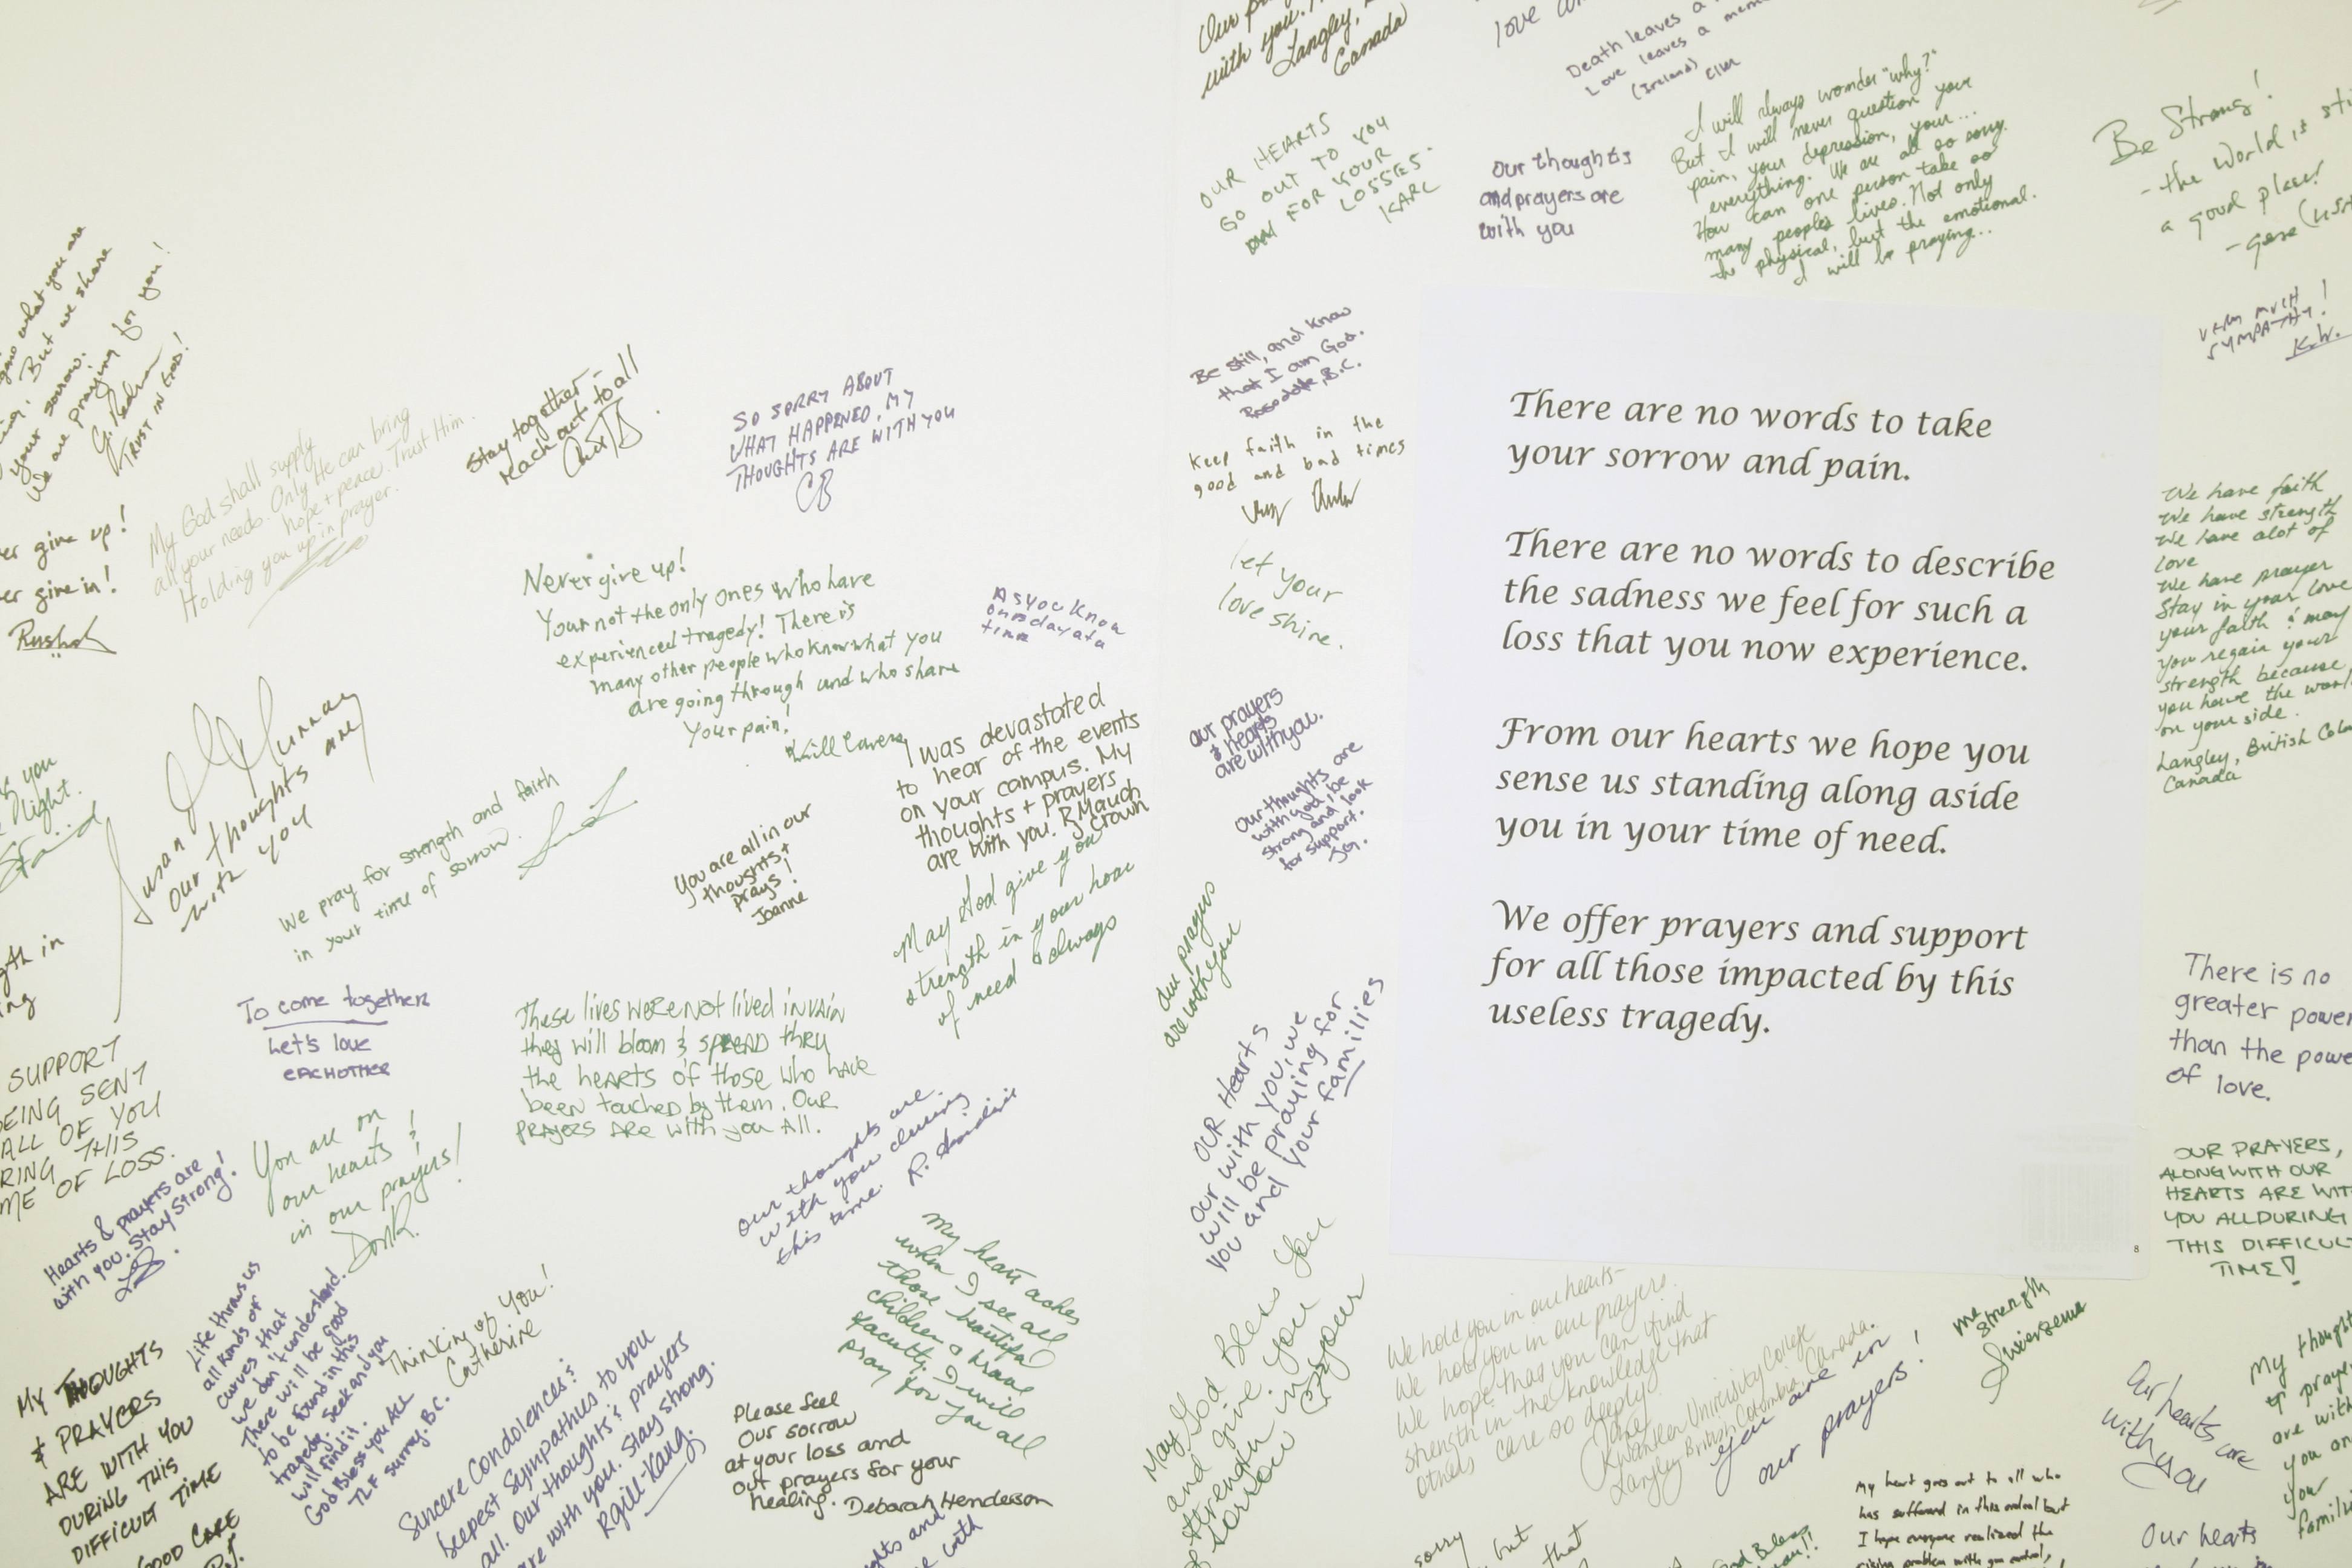 Our
with you.
Langley,
Canada
love
Death leaves a
Love leaves a
(Ireland)
OUR HEARTS
GO OUT TO YOU
FOR YOUR
LOSSES.
KARL
Our thoughts
and prayers are
with you
I will always wonder "why?"
But I will never question your
pain, your depression, your...
everything. We are all so sorry.
How can one person take so
many peoples lives. Not only
the physical, but the emotional.
I will be praying...
Be Strong!
- the world is
a good place!
- gose
VERY MUCH
SYMPATHY!
K.W.
what you are
But we share
your sorrow.
We are praying for you!
TRUST IN GOD!
give up!
give in!
My God shall supply
all your needs. Only He can bring
hope + peace. Trust Him.
Holding you up in prayer.
Stay together -
reach out to all
SO SORRY ABOUT
WHAT HAPPENED, MY
THOUGHTS ARE WITH YOU
CB
Never give up!
Your not the only ones who have
experienced tragedy! There is
many other people who know what you
are going through and who share
Your pain!
As you know
one day at a
time
I was devastated
to hear of the events
on your campus. My
thoughts + prayers
are with you. R Mauch
May God give you
strength in your hour
of need & always
Be still, and know
that I am God.
B.C.
Keep faith in the
good and bad times
let your
love shine.
our prayers
& hearts
are with you.
Our thoughts are
with you, be
strong and look
for support.
Joy.
Our prayers
are with you
OUR Hearts
our with you, we
will be praying for
you and your families
There are no words to take
your sorrow and pain.
There are no words to describe
the sadness we feel for such a
loss that you now experience.
From our hearts we hope you
sense us standing along aside
you in your time of need.
We offer prayers and support
for all those impacted by this
useless tragedy.
8
We have faith
We have strength
We have alot of
love
We have prayer
Stay in your love
your faith & may
you regain your
strength because
you have the
on your side.
Langley, British
Canada
There is no
greater power
than the
of love.
OUR PRAYERS,
ALONG WITH OUR
HEARTS ARE
YOU ALL DURING
THIS DIFFICULT
TIME!
you
light.
Susan Murray
Our thoughts are
with you
We pray for strength and faith
in your time of sorrow.
You are all in our
thoughts +
prays!
Joanne
To come together
Let's love
EACHOTHER
These lives were not lived in vain
they will bloom & spread thru
the hearts of those who have
been touched by them. Our
prayers are with you all.
SUPPORT
BEING SENT
ALL OF YOU
THIS
OF LOSS.
You are in
our hearts!
in our prayers!
Don R.
our thoughts are
with you during
this time.
Hearts & prayers are
with you. Stay Strong!
Life throws us
all kinds of
curves that
we don't understand.
There will be good
to be found in this
tragedy. Seek and you
will find it.
God Bless you ALL
TLF Surrey. B.C.
Thinking of You!
Catherine
my heart aches
when I see all
those beautiful
children & brave
faculty. I will
pray for you all
MY THOUGHTS
& PRAYERS
ARE WITH YOU
DURING THIS
DIFFICULT TIME
GOOD CARE
Sincere Condolences &
Deepest Sympathies to you
all. Our thoughts & prayers
are with you. Stay strong.
Rgill-Kang.
Please feel
Our sorrow
at your loss and
our prayers for your
healing. Deborah Henderson
with
May God Bless You
and give you
strength in your
sorrow
We hold you in our hearts -
We hold you in our prayers.
We hope that you can find
strength in the knowledge that
others care so deeply.
Kwantlen University College
Langley British Columbia, Canada.
You are in
our prayers!
strength
Our hearts are
with you
My
prayers
are with
you
your
families
My heart goes out to all who
has suffered in this ordeal but
I hope everyone realized the
problem with gun control,
sorry
but
that
God Bless
Our hearts